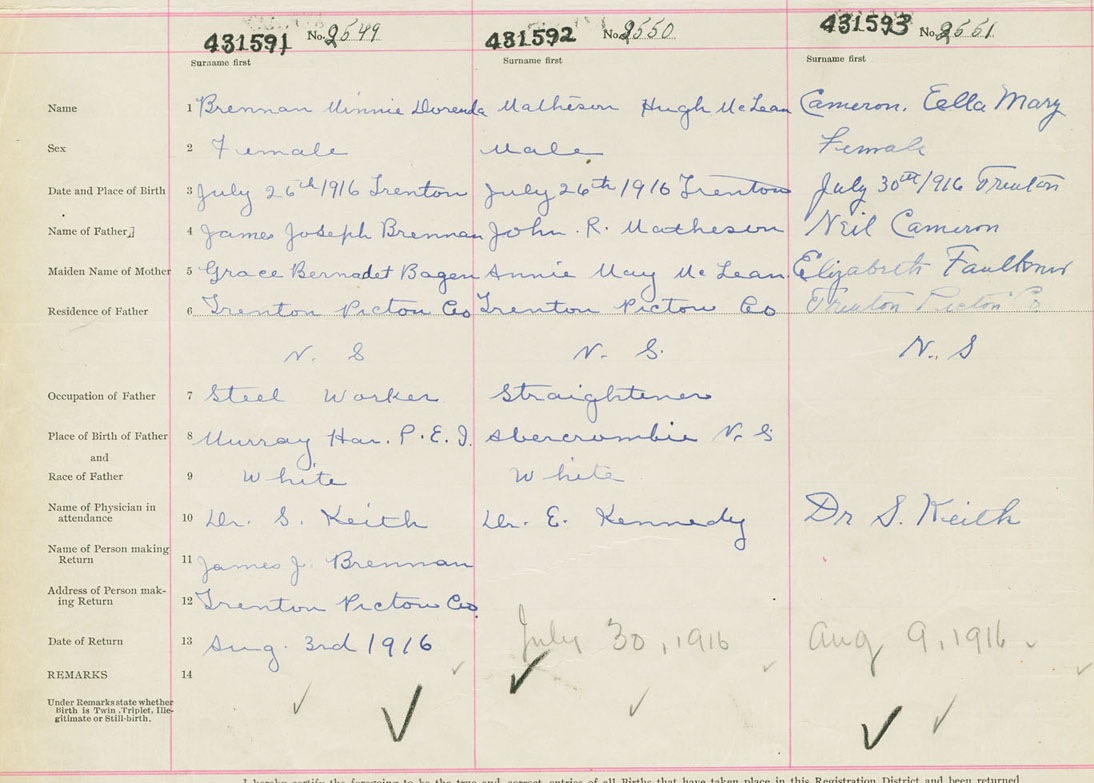 431591 No. 2549 431592 No. 2550 431593 No. 2551
Surname first Surname first Surname first
Name 1 Brennan Minnie Dorenda Matheson Hugh McLean Cameron. Eella Mary
Sex 2 Female Male Female
Date and Place of Birth 3 July 26th/1916 Trenton July 26th/1916 Trenton July 30th/1916 Trenton
Name of Father 4 James Joseph Brennan John. R. Matheson Neil Cameron
Maiden Name of Mother 5 Grace Bernadet Bagen Annie May McLean. Elizabeth
Residence of Father 6 Trenton Pictou Co Trenton Pictou Co Trenton Pictou Co
N. S N. S. N. S
Occupation of Father 7 Steel Worker Straightener
Place of Birth of Father 8 Murray Har. P.E.I. Abercrombie N.S
and
Race of Father 9 White White
Name of Physician in
attendance 10 Dr. S. Keith Dr. E. Kennedy Dr S. Keith
Name of Person making
Return 11 James J. Brennan
Address of Person mak-
ing Return 12 Trenton Pictou Co.
Date of Return 13 Aug. 3rd 1916 July 30, 1916 Aug 9, 1916
REMARKS 14
Under Remarks state whether
Birth is Twin, Triplet, Ille-
gitimate or Still-birth.
I hereby certify the foregoing to be the true and correct entries of all Births that have taken place in this Registration District and been returned